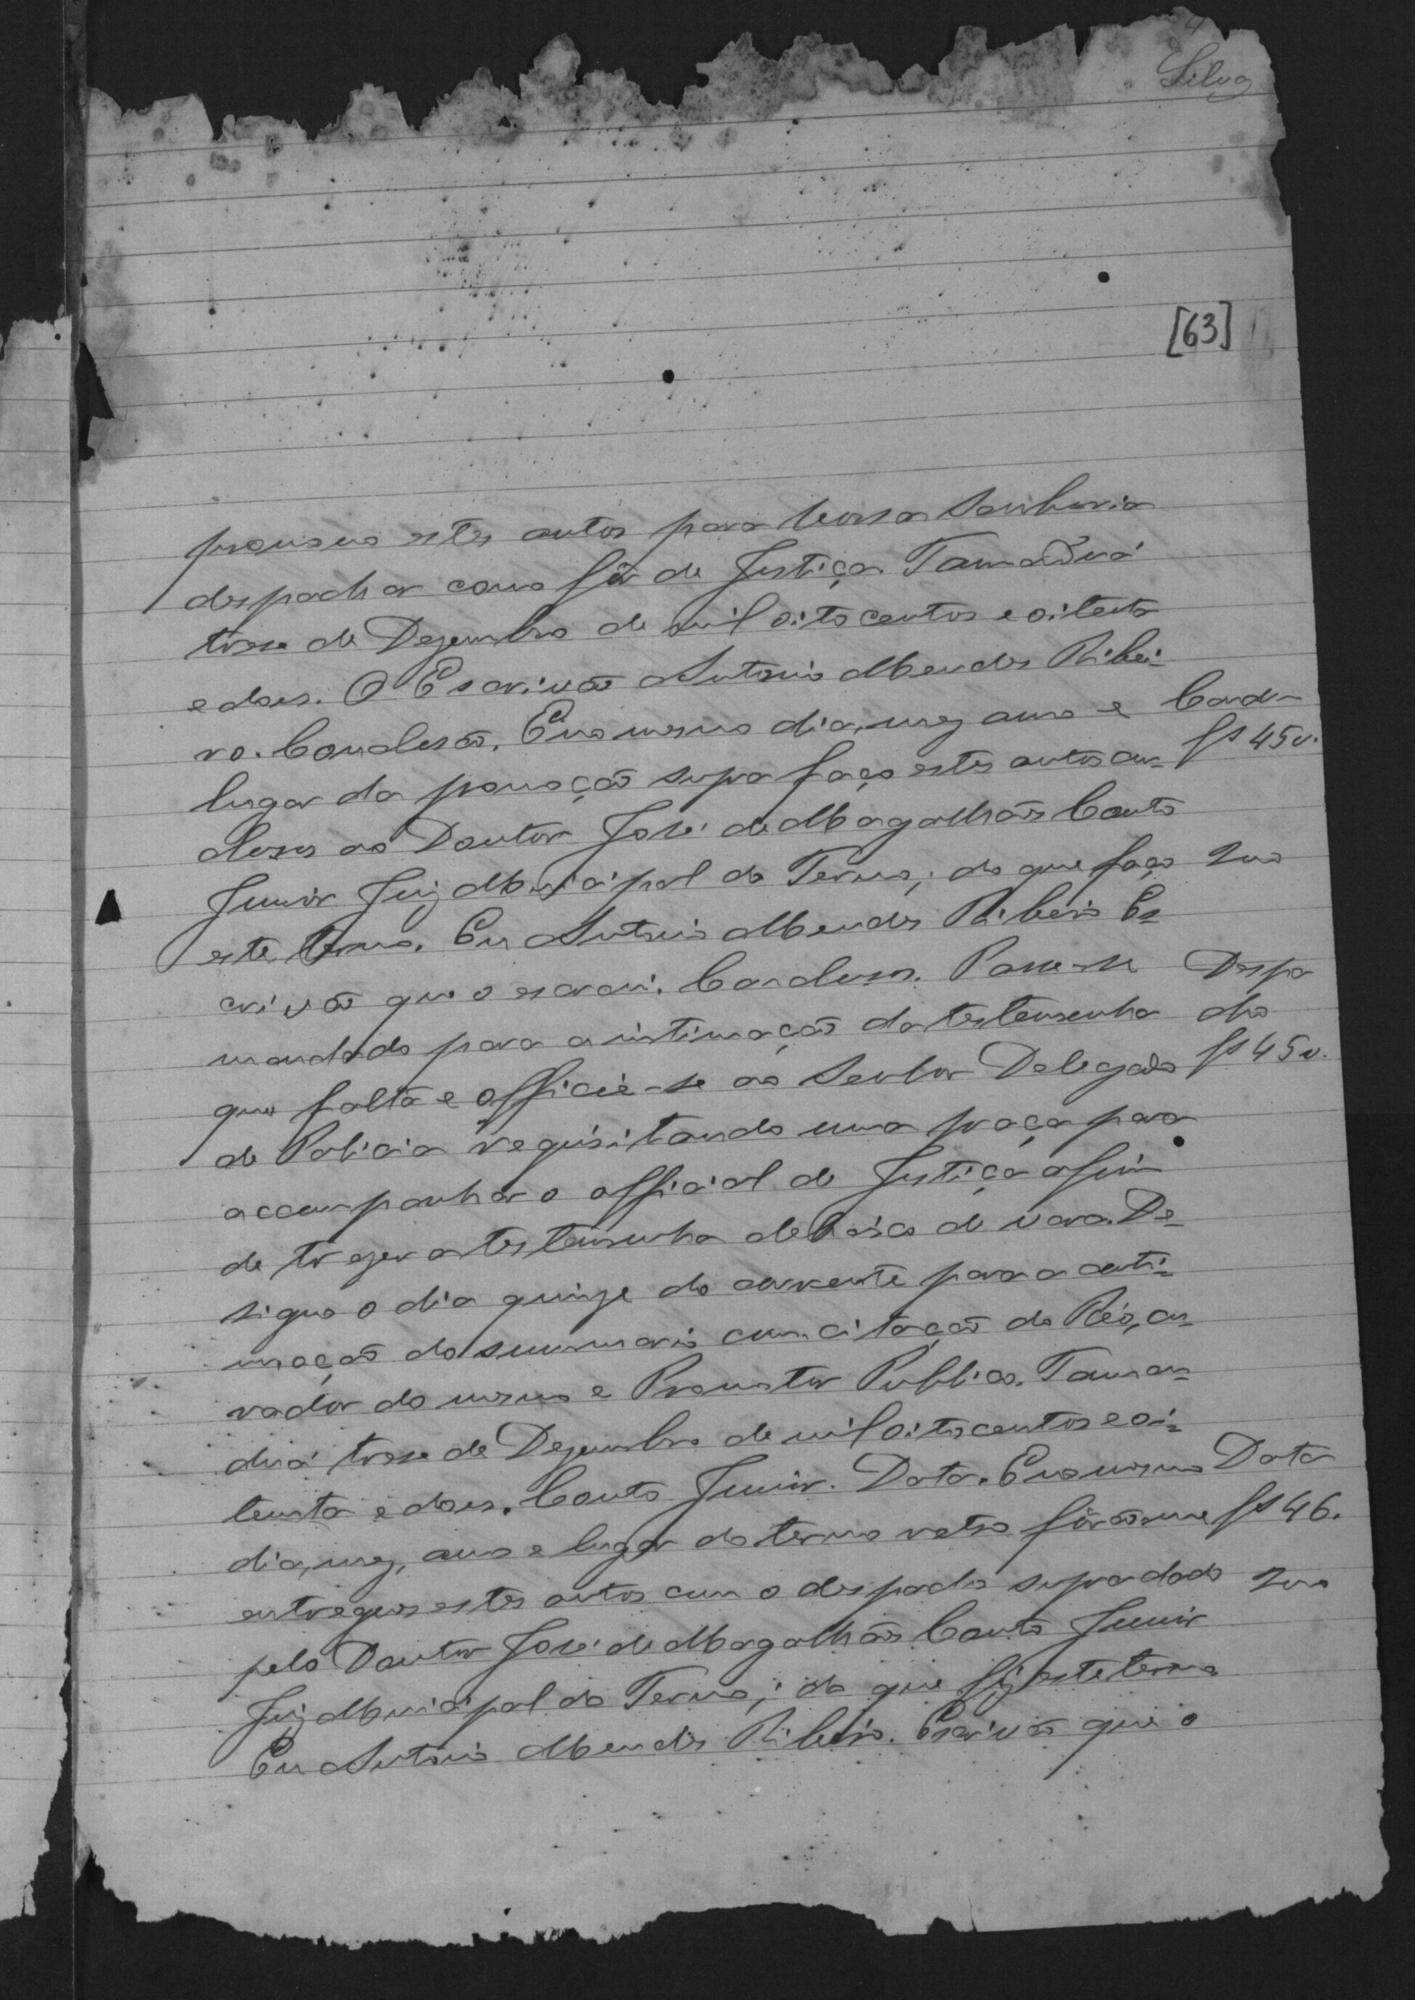 Silva
[63]
promovo estes autos para Vossa Senhoria
despachar como fôr de Justiça. Tamanduá
trese de Dezembro de mil oito centos e oitenta
e dous. O Escrivão Antonio Mendes Ribei-
ro. Conclusão. E no mesmo dia, mez anno e
lugar da promoção supra faço estes autos con-
clusos ao Doutor José de Magalhães Couto
Junior Juiz Municipal do Termo; do que faço
este termo. Eu Antonio Mendes Ribeiro Es-
crivão que o escrevi. Conclusos. Passe-se
mandado para a intimação da testemunha
que falta e officie-se ao Senhor Delegado
de Policia requisitando uma praça para
accompanhar o official de Justiça afim
de trazer a testemunha debaixo de vara. De-
signo o dia quinze do corrente para a conti-
nuação do summario com citação do Réo, cu-
rador do mesmo e Promotor Publico. Taman-
duá trese de Dezembro de mil oito centos e oi-
tenta e dous. Couto Junior. Data. E no mesmo
dia, mez, anno e lugar do termo retro fôrão-me
entregues estes autos com o despacho supra dado
pelo Doutor José de Magalhães Couto Junior
Juiz Municipal do Termo; do que fiz este termo
Eu Antonio Mendes Ribeiro. Escrivão que o
fs 45v.
Despa
cho
fs 45v.
Data
fs 46.